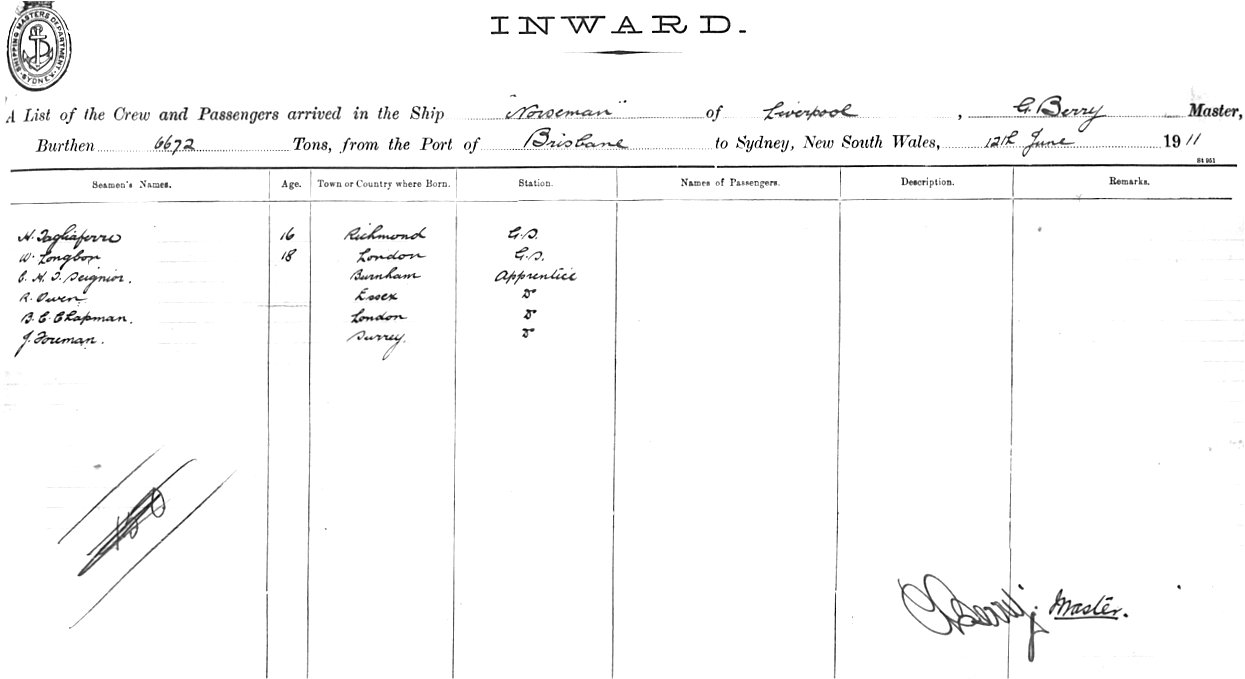 SHIPPING MASTERS DEPARTMENT SYDNEY
INWARD.
A List of the Crew and Passengers arrived in the Ship "Norseman" of Liverpool, G. Berry Master,
Burthen 6672 Tons, from the Port of Brisbane to Sydney, New South Wales, 12th June 1911
St 951
Seamen's Names. Age. Town or Country where Born. Station. Names of Passengers. Description. Remarks.
H. Tagliaferro 16 Richmond G.S.
W. Longbon 18 London G.S.
C. H. T. Seignior. Burnham Apprentice
R. Owen Essex Do
B. C. Chapman. London Do
J. Foreman. Surrey. Do
G Berry Master.